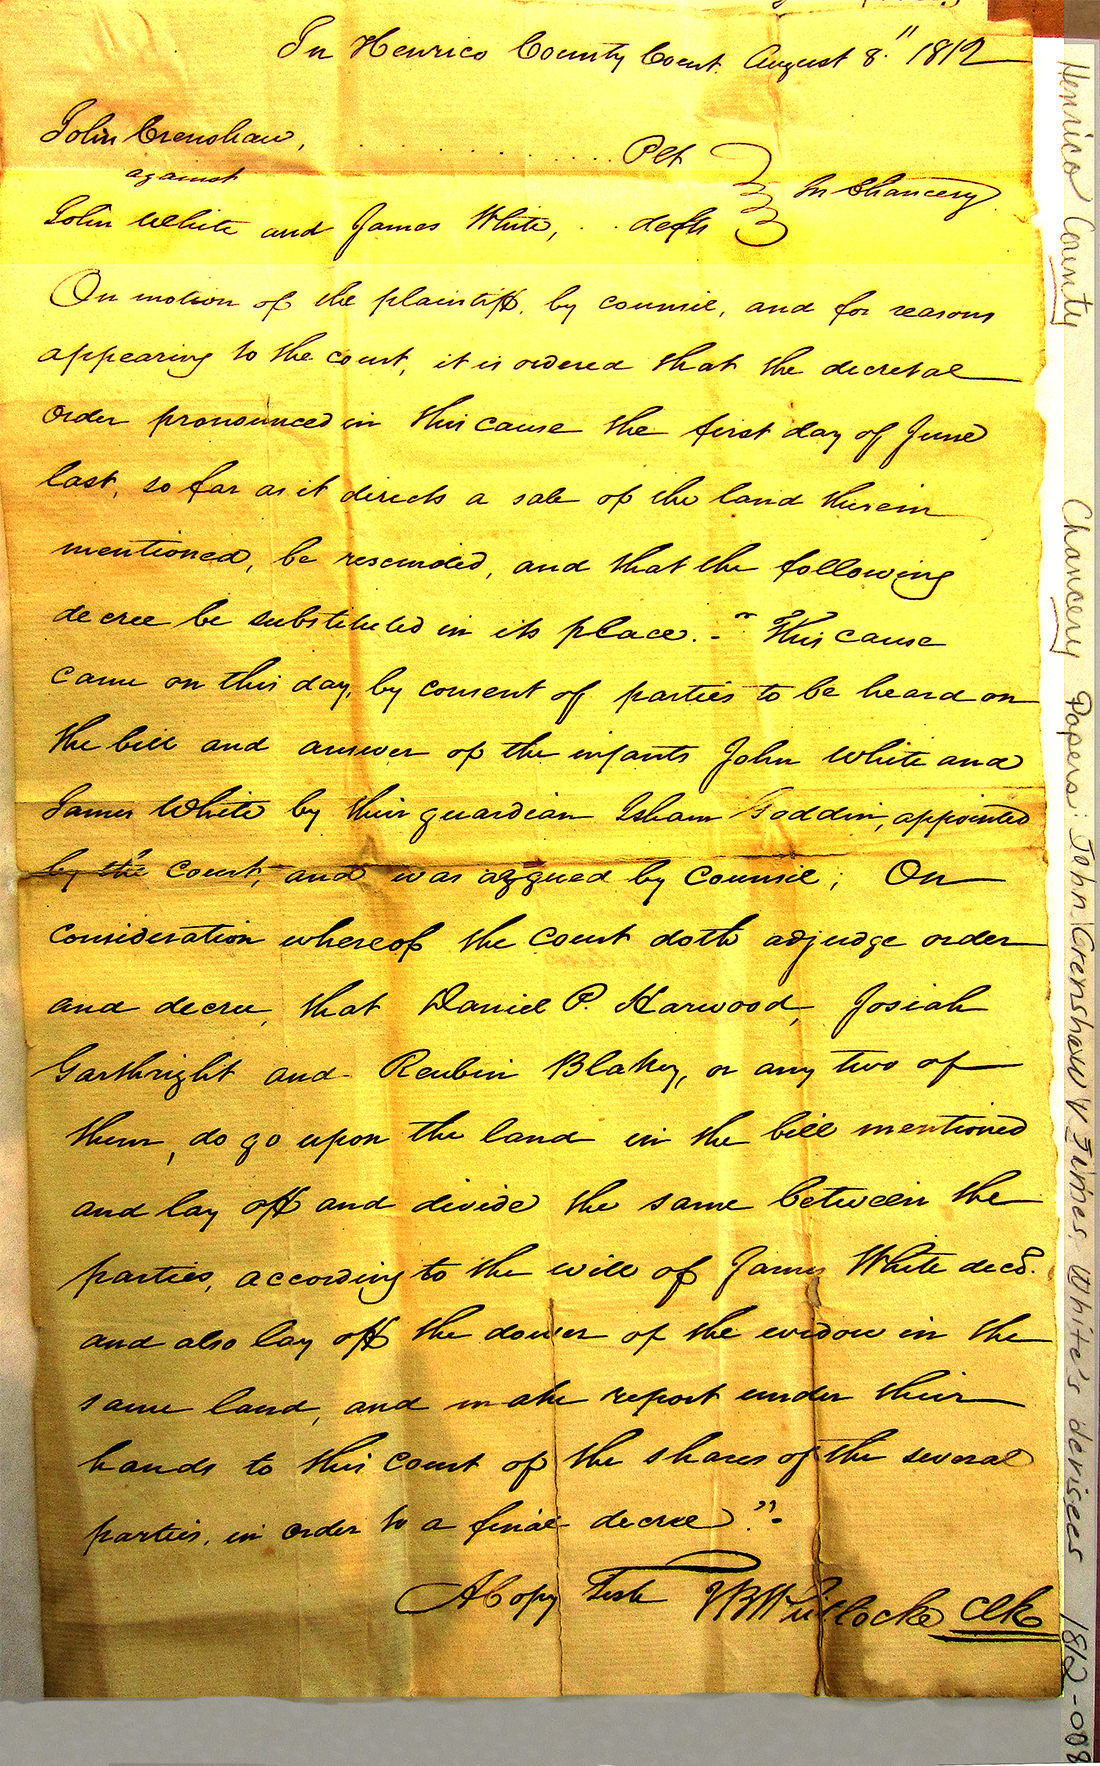 In Henrico County Court. August 8." 1812
John Crenshaw, . . . . . . . . . . . . . . Plt
against
In Chancery
John White and James White, . . defts
On motion of the plaintiff, by counsil, and for reasons
appearing to the court, it is ordered that the decretal
order pronounced in this cause the first day of June
last, so far as it directs a sale of the land therein
mentioned, be rescinded, and that the following
decree be substituted in its place. - " This cause
came on this day, by consent of parties to be heard on
the bill and answer of the infants John White and
James White by their guardian Isham Goddin, appointed
by the Court, and was argued by Counsil; On
consideration whereof the Court doth adjudge order
and decree, that Daniel P. Harwood, Josiah
Garthright and Reubin Blakey, or any two of
them, do go upon the land in the bill mentioned
and lay off and divide the same between the
parties, according to the will of James White decd.
and also lay off the dower of the widow in the
same land, and make report under their
hands to this Court of the shares of the several
parties, in order to a final decree." -
A Copy Teste
Clk
Henrico County Chancery Papers: John Crenshaw v James White's devisees 1812-008